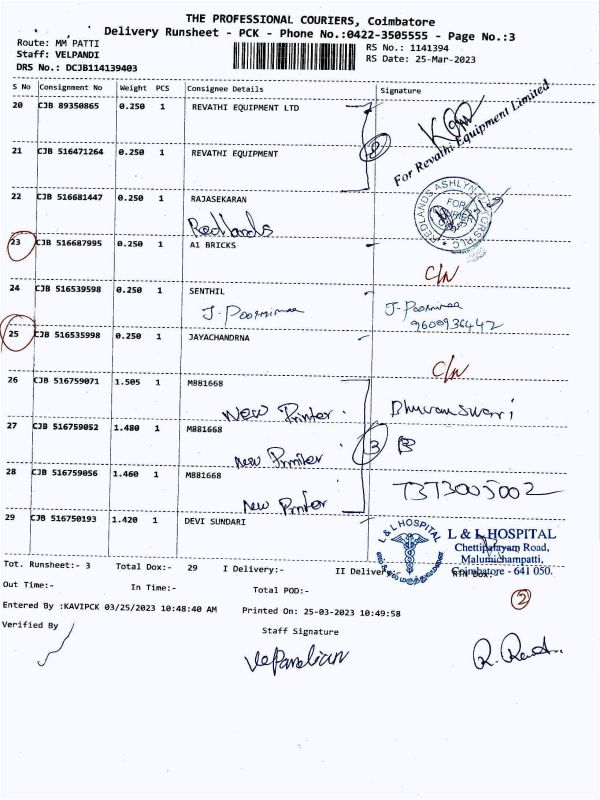 THE PROFESSIONAL COURIERS, Coimbatore
Delivery Runsheet - PCK - Phone No.:0422-3505555 - Page No.:3
Route: MM PATTI
Staff: VELPANDI
DRS No.: DCJB114139403
RS No.: 1141394
RS Date: 25-Mar-2023
S No Consignment No Weight PCS Consignee Details Signature
20 CJB 89350865 0.250 1 REVATHI EQUIPMENT LTD
For Revathi Equipment Limited
8
21 CJB 516471264 0.250 1 REVATHI EQUIPMENT
22 CJB 516681447 0.250 1 RAJASEKARAN
Redlands
REDLANDS ASHLYN MOTORS PLC
FOR
23 CJB 516687995 0.250 1 A1 BRICKS
C/N
24 CJB 516539598 0.250 1 SENTHIL
J. Poornimaa J. Poornimaa
9600936442
25 CJB 516535998 0.250 1 JAYACHANDRNA
C/N
26 CJB 516759071 1.505 1 M881668
New Printer. Bhuvaneswari
27 CJB 516759052 1.480 1 M881668
3
New Printer
28 CJB 516759056 1.460 1 M881668
7373005002
New Printer
29 CJB 516750193 1.420 1 DEVI SUNDARI
L & L HOSPITAL
L & L HOSPITAL
Chettipalayam Road,
Malumichampatti,
Coimbatore - 641 050.
Tot. Runsheet:- 3 Total Dox:- 29 I Delivery:- II Delivery:- RTN Dox:
Out Time:- In Time:- Total POD:-
2
Entered By :KAVIPCK 03/25/2023 10:48:40 AM Printed On: 25-03-2023 10:49:58
Verified By Staff Signature
VelPandian